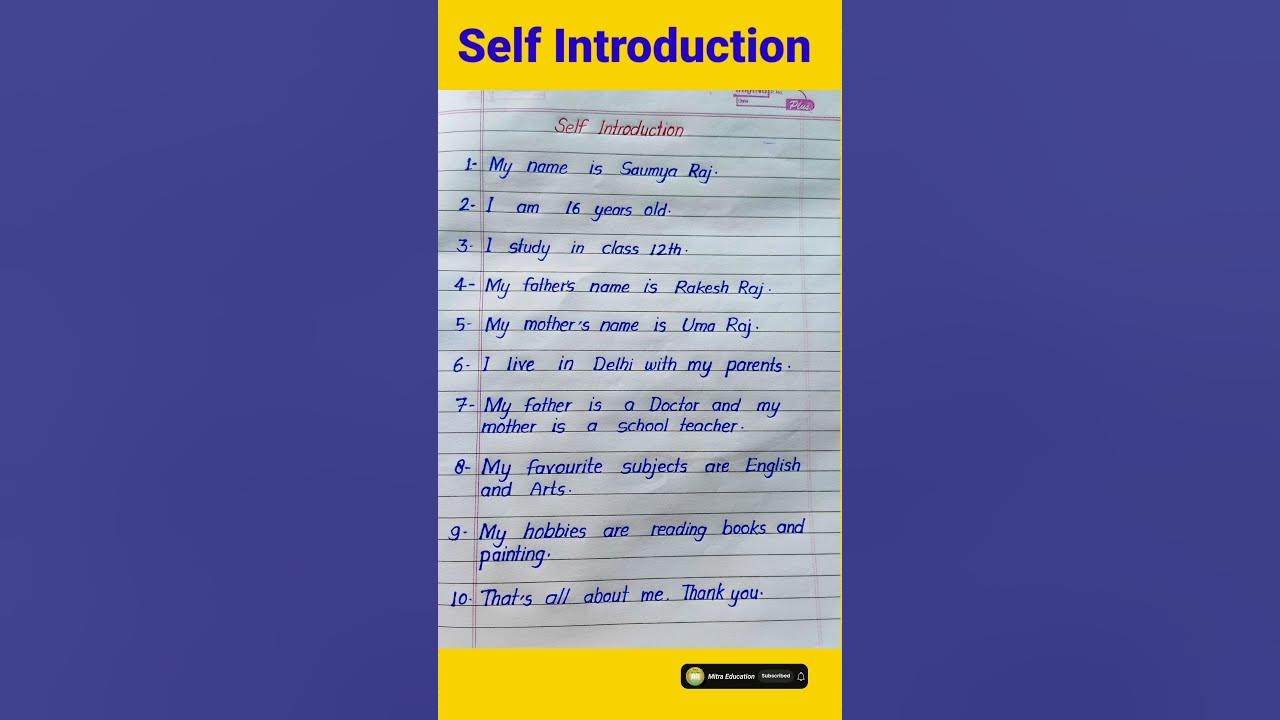 Self Introduction
Plus
Self Introduction
1- My name is Saumya Raj.
2- I am 16 years old.
3- I study in class 12th.
4- My father's name is Rakesh Raj.
5- My mother's name is Uma Raj.
6- I live in Delhi with my parents.
7- My father is a Doctor and my
mother is a school teacher.
8- My favourite subjects are English
and Arts.
9- My hobbies are reading books and
painting.
10. That's all about me. Thank you.
Mitra Education Subscribed